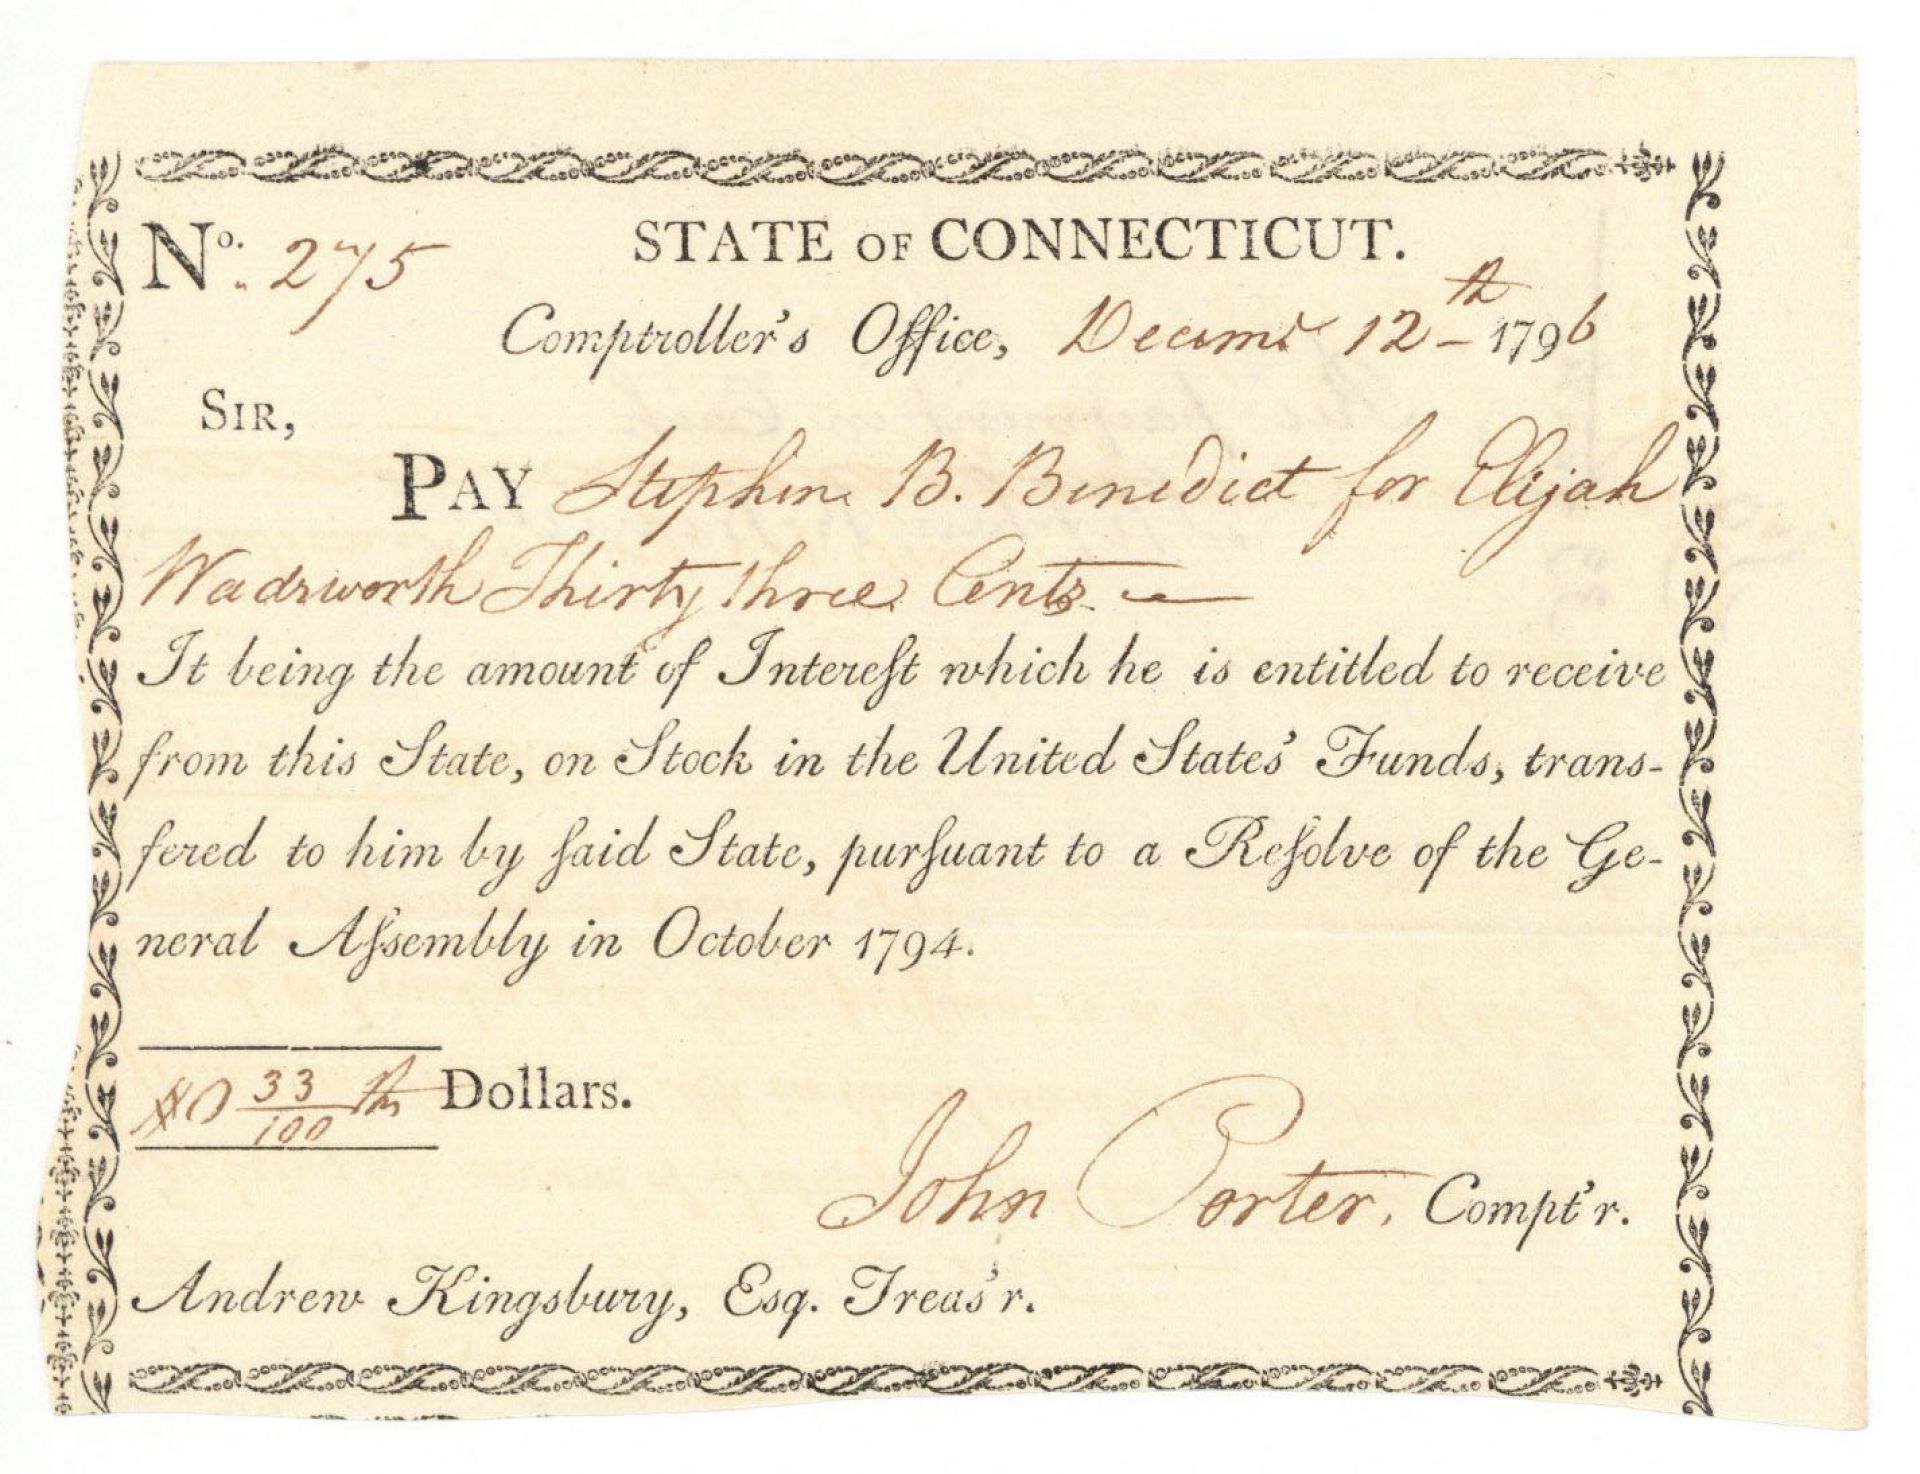 No. 275 STATE OF CONNECTICUT.
Comptroller's Office, Decemr 12th 1796
SIR,
PAY Stephen B. Benedict for Elijah
Wadsworth Thirty three Cents
It being the amount of Intereſt which he is entitled to receive
from this State, on Stock in the United States' Funds, trans-
fered to him by ſaid State, purſuant to a Reſolve of the Ge-
neral Aſsembly in October 1794.
$0 33/100 th Dollars.
John Porter, Compt'r.
Andrew Kingsbury, Esq. Treas'r.